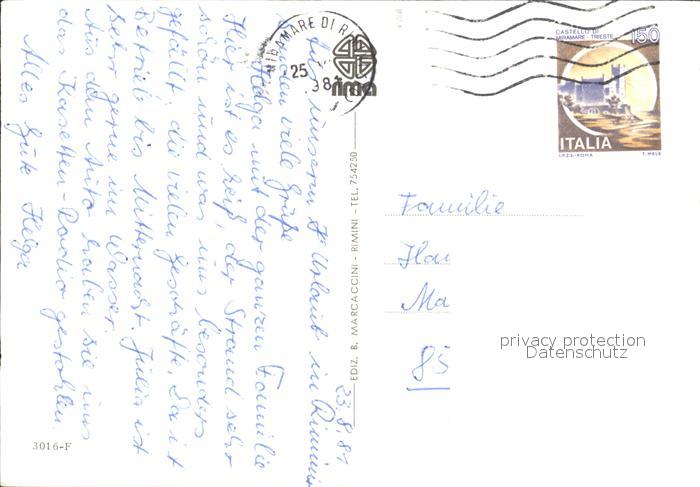 23.8.81
Aus unserm Urlaub in Rimini
senden viele Grüße
Helga mit der ganzen Familie
Hier ist es heiß, der Strand sehr
schön und was uns besonders
gefällt, die vielen Geschäfte. Da ist
Betrieb bis Mitternacht. Julia ist
sehr gerne im Wasser.
Aus dem Auto haben sie uns
das Kasetten-Radio gestohlen.
Alles Gute Helga
3016-F
EDIZ. B. MARCACCINI - RIMINI - TEL. 754250
MIRAMARE DI R
25
.98
rima
CASTELLO DI
MIRAMARE - TRIESTE
150
ITALIA
I.P.Z.S.-ROMA
T. MELE
Familie
Ha
Ma
85
privacy protection
Datenschutz